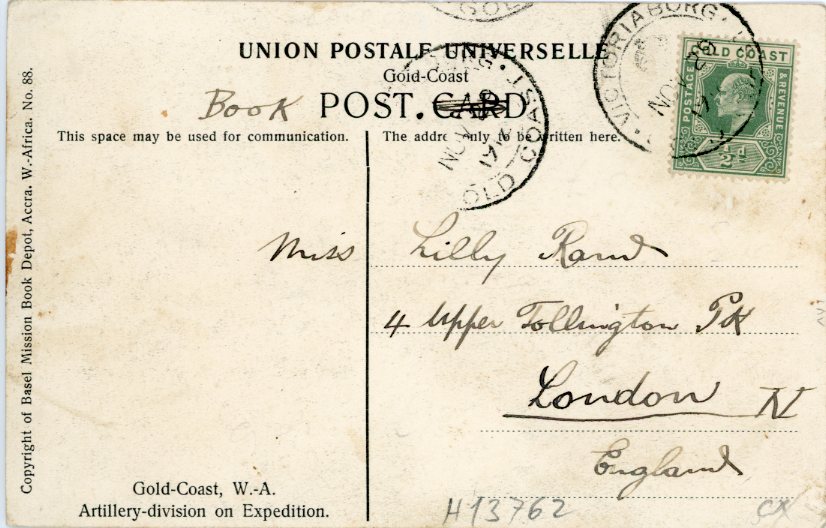 UNION POSTALE UNIVERSELLE
Gold-Coast
Book POST. CARD
This space may be used for communication.
The addre only to be written here.
VICTORIABORG
NOV 28
GOLD COAST
NOV
GOLD COAST
POSTAGE
& REVENUE
½d
Miss Lilly Rand
4 Upper Tollington PK
London N
England
Gold-Coast, W.-A.
Artillery-division on Expedition.
H13762
CX
Copyright of Basel Mission Book Depot, Accra. W.-Africa. No. 88.